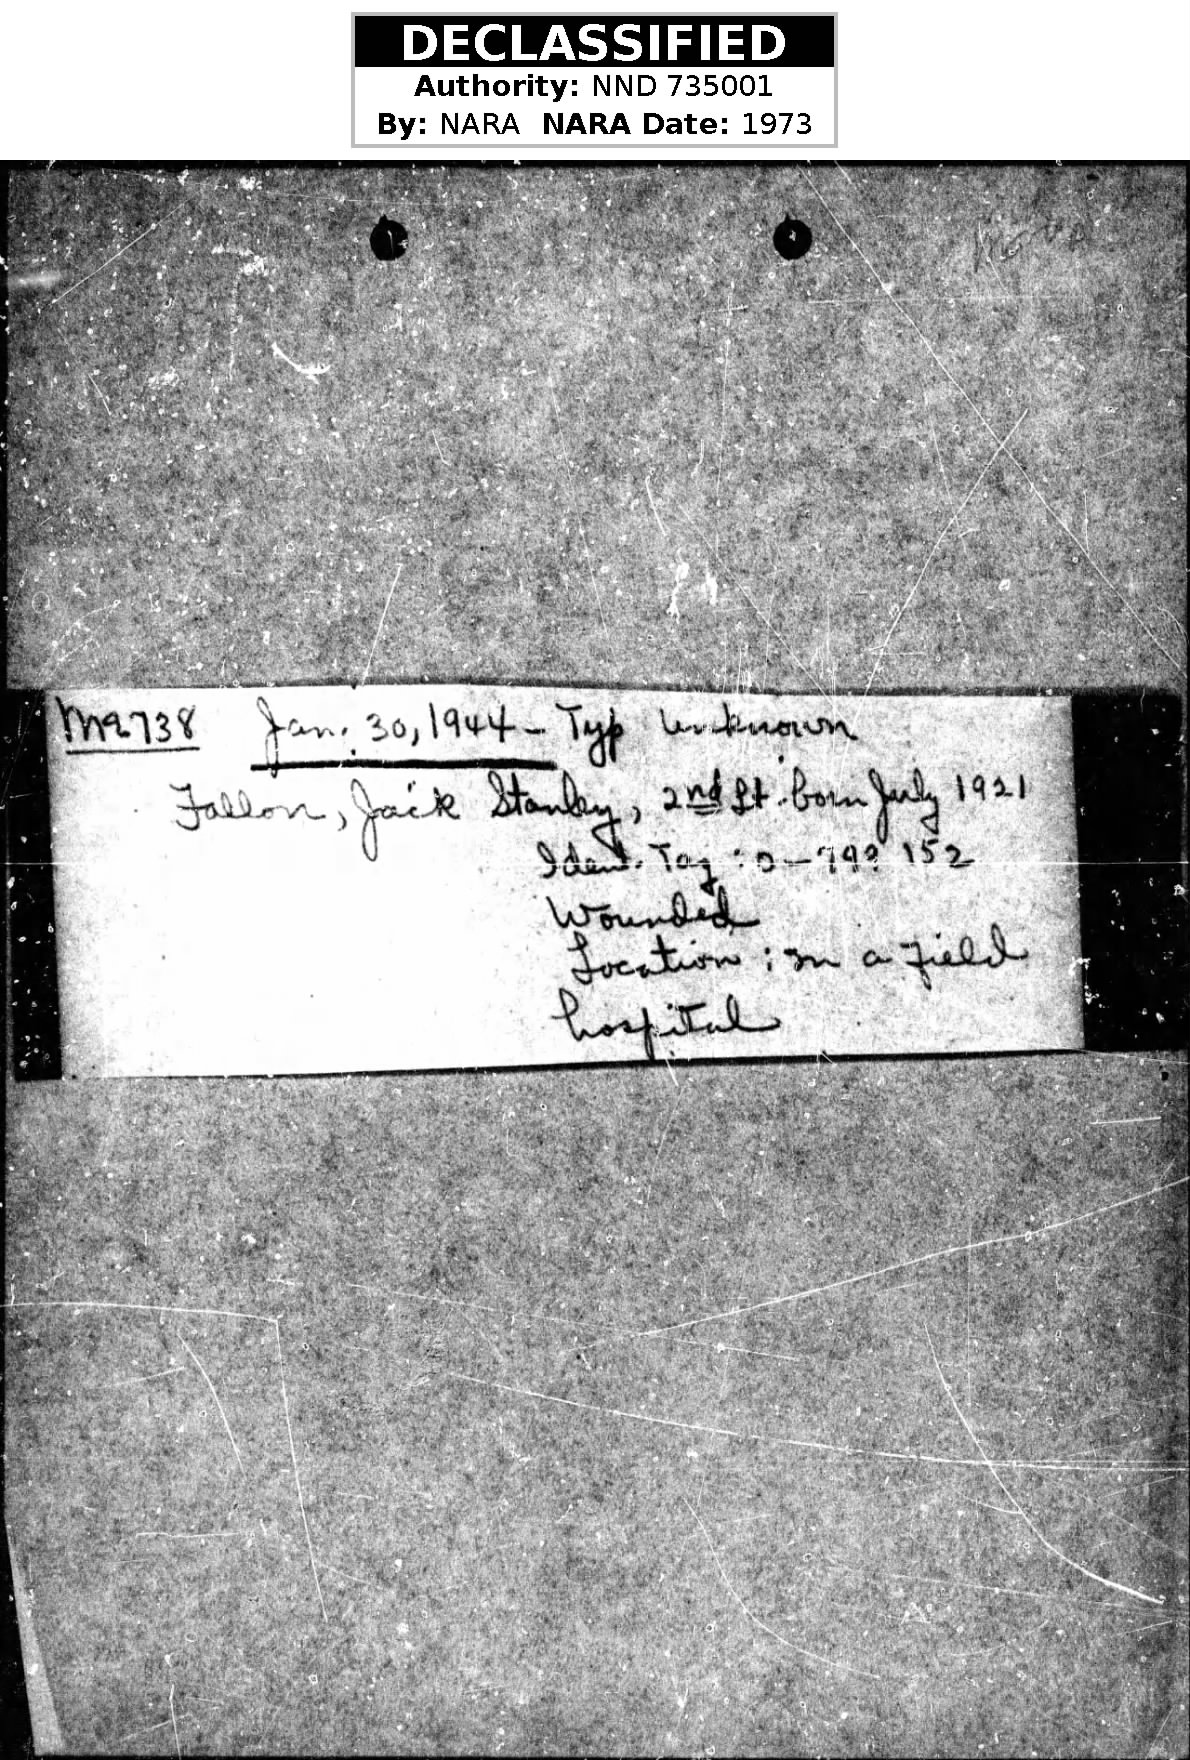 DECLASSIFIED
Authority: NND 735001
By: NARA NARA Date: 1973
Jan. 30, 1944 – Typ unknown
Fallon, Jack Stanley, 2nd Lt. born July 1921
Ident. Tag : 0 – 152
Wounded
Location : In a field
hospital